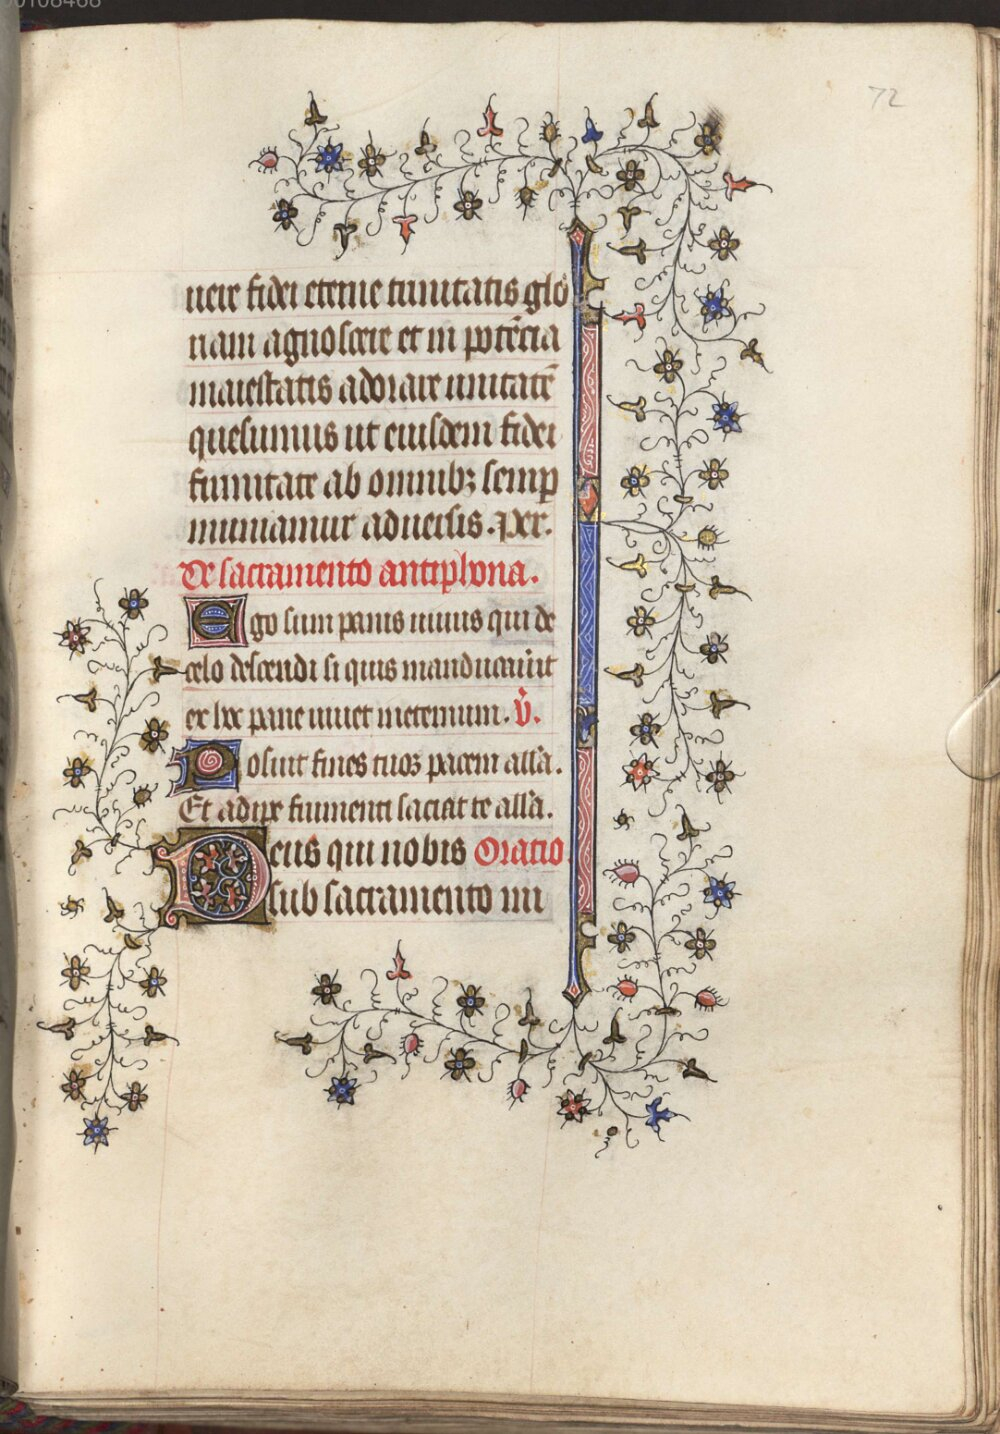 00108468
72
uere fidei eterne trinitatis glo
riam agnoscere et in potēcia
maiestatis adorare unitatē
quesumus ut eiusdem fidei
firmitate ab omnibꝫ semꝑ
muniamur aduersis. Per.
De sacramento antiphona.
Ego sum panis uiuus qui de
celo descendi si quis manducauīt
ex hoc pane uiuet ineternum. v̄.
Posuit fines tuos pacem all'a.
Et adipe frumenti saciat te all'a.
Deus qui nobis Oratio
sub sacramento mi